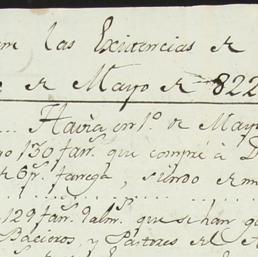 las Existencias de
de Mayo de 822
Havia en 1º. de Mayo
130 fan.s que compré à D
6 p.s fanega, siendo
129 fan.s 7 alm.s que se han
Baqueros, y Pastores del